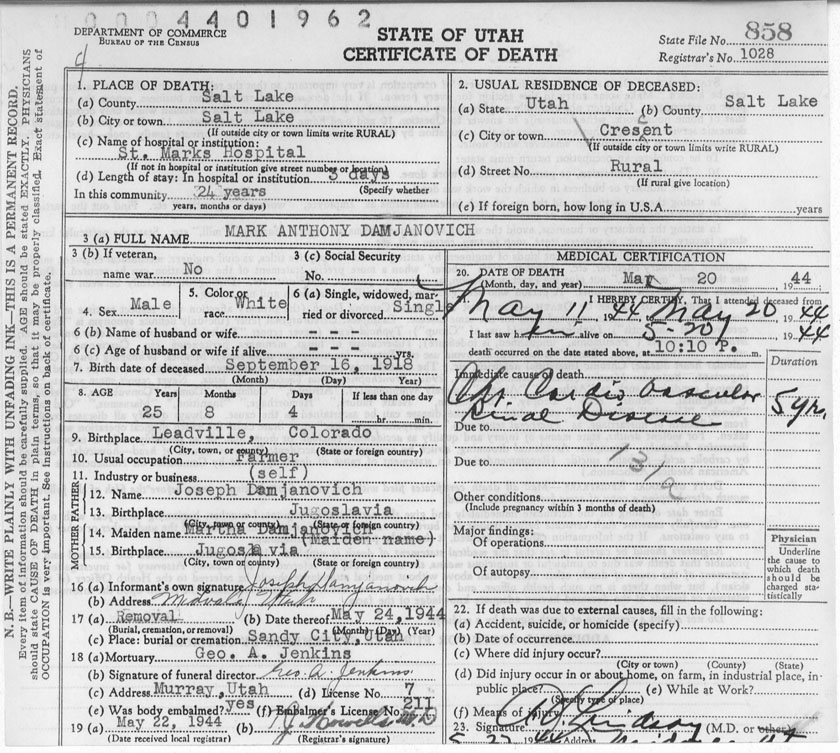 0004401962
DEPARTMENT OF COMMERCE
BUREAU OF THE CENSUS
STATE OF UTAH
CERTIFICATE OF DEATH
State File No. 858
Registrar's No. 1028
N. B.—WRITE PLAINLY WITH UNFADING INK—THIS IS A PERMANENT RECORD.
Every item of information should be carefully supplied. AGE should be stated EXACTLY. PHYSICIANS
should state CAUSE OF DEATH in plain terms, so that it may be properly classified. Exact statement of
OCCUPATION is very important. See instructions on back of certificate.
1. PLACE OF DEATH:
(a) County Salt Lake
(b) City or town Salt Lake
(If outside city or town limits write RURAL)
(c) Name of hospital or institution:
St. Marks Hospital
(If not in hospital or institution give street number or location)
(d) Length of stay: In hospital or institution 3 days
(Specify whether
In this community 24 years
years, months or days)
2. USUAL RESIDENCE OF DECEASED:
(a) State Utah (b) County Salt Lake
(c) City or town Cresent
(If outside city or town limits write RURAL)
(d) Street No. Rural
(If rural give location)
(e) If foreign born, how long in U.S.A. years
3 (a) FULL NAME MARK ANTHONY DAMJANOVICH
3 (b) If veteran,
name war No
3 (c) Social Security
No.
4. Sex Male
5. Color or
race White
6 (a) Single, widowed, mar-
ried or divorced Single
6 (b) Name of husband or wife - - -
6 (c) Age of husband or wife if alive - - - yrs.
7. Birth date of deceased September 16, 1918
(Month) (Day) Year)
8. AGE Years Months Days If less than one day
25 8 4 hr. min.
9. Birthplace Leadville, Colorado
(City, town, or county) (State or foreign country)
10. Usual occupation Farmer
11. Industry or business (self)
FATHER
12. Name Joseph Damjanovich
13. Birthplace Jugoslavia
(City, town or county) (State or foreign country)
MOTHER
14. Maiden name Martha Damjanovich
(Maiden name)
15. Birthplace Jugoslavia
(City, town or county) (State or foreign country)
16 (a) Informant's own signature Joseph Damjanovich
(b) Address Utah
17 (a) Removal (b) Date thereof May 24, 1944
(Burial, cremation, or removal) (Month) (Day) (Year)
(c) Place: burial or cremation Sandy City, Utah
18 (a) Mortuary Geo. A. Jenkins
(b) Signature of funeral director Geo. A. Jenkins
(c) Address Murray, Utah (d) License No. 7
(e) Was body embalmed? yes (f) Embalmer's License No. 211
19 (a) May 22, 1944 (b)
(Date received local registrar) (Registrar's signature)
MEDICAL CERTIFICATION
20. DATE OF DEATH
(Month, day, and year) May 20 1944
21. I HEREBY CERTIFY, That I attended deceased from
May 11, 1944 May 20 1944
I last saw him alive on 5-20, 1944
death occurred on the date stated above, at 10:10 P. m.
Duration
Immediate cause of death
Cardio Vascular
Renal Disease 5 yrs.
Due to
Due to 131a
Other conditions
(Include pregnancy within 3 months of death)
Major findings:
Of operations
Of autopsy
Physician
Underline
the cause to
which death
should be
charged sta-
tistically
22. If death was due to external causes, fill in the following:
(a) Accident, suicide, or homicide (specify)
(b) Date of occurrence
(c) Where did injury occur?
(City or town) (County) (State)
(d) Did injury occur in or about home, on farm, in industrial place, in
public place? (e) While at Work?
(Specify type of place)
(f) Means of injury
23. Signature Lindsay (M.D. or other)
Address